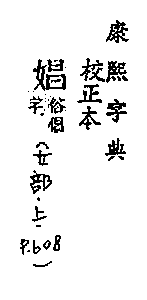 康熙字典
校正本
娼俗倡字.(女部.上.P.608)